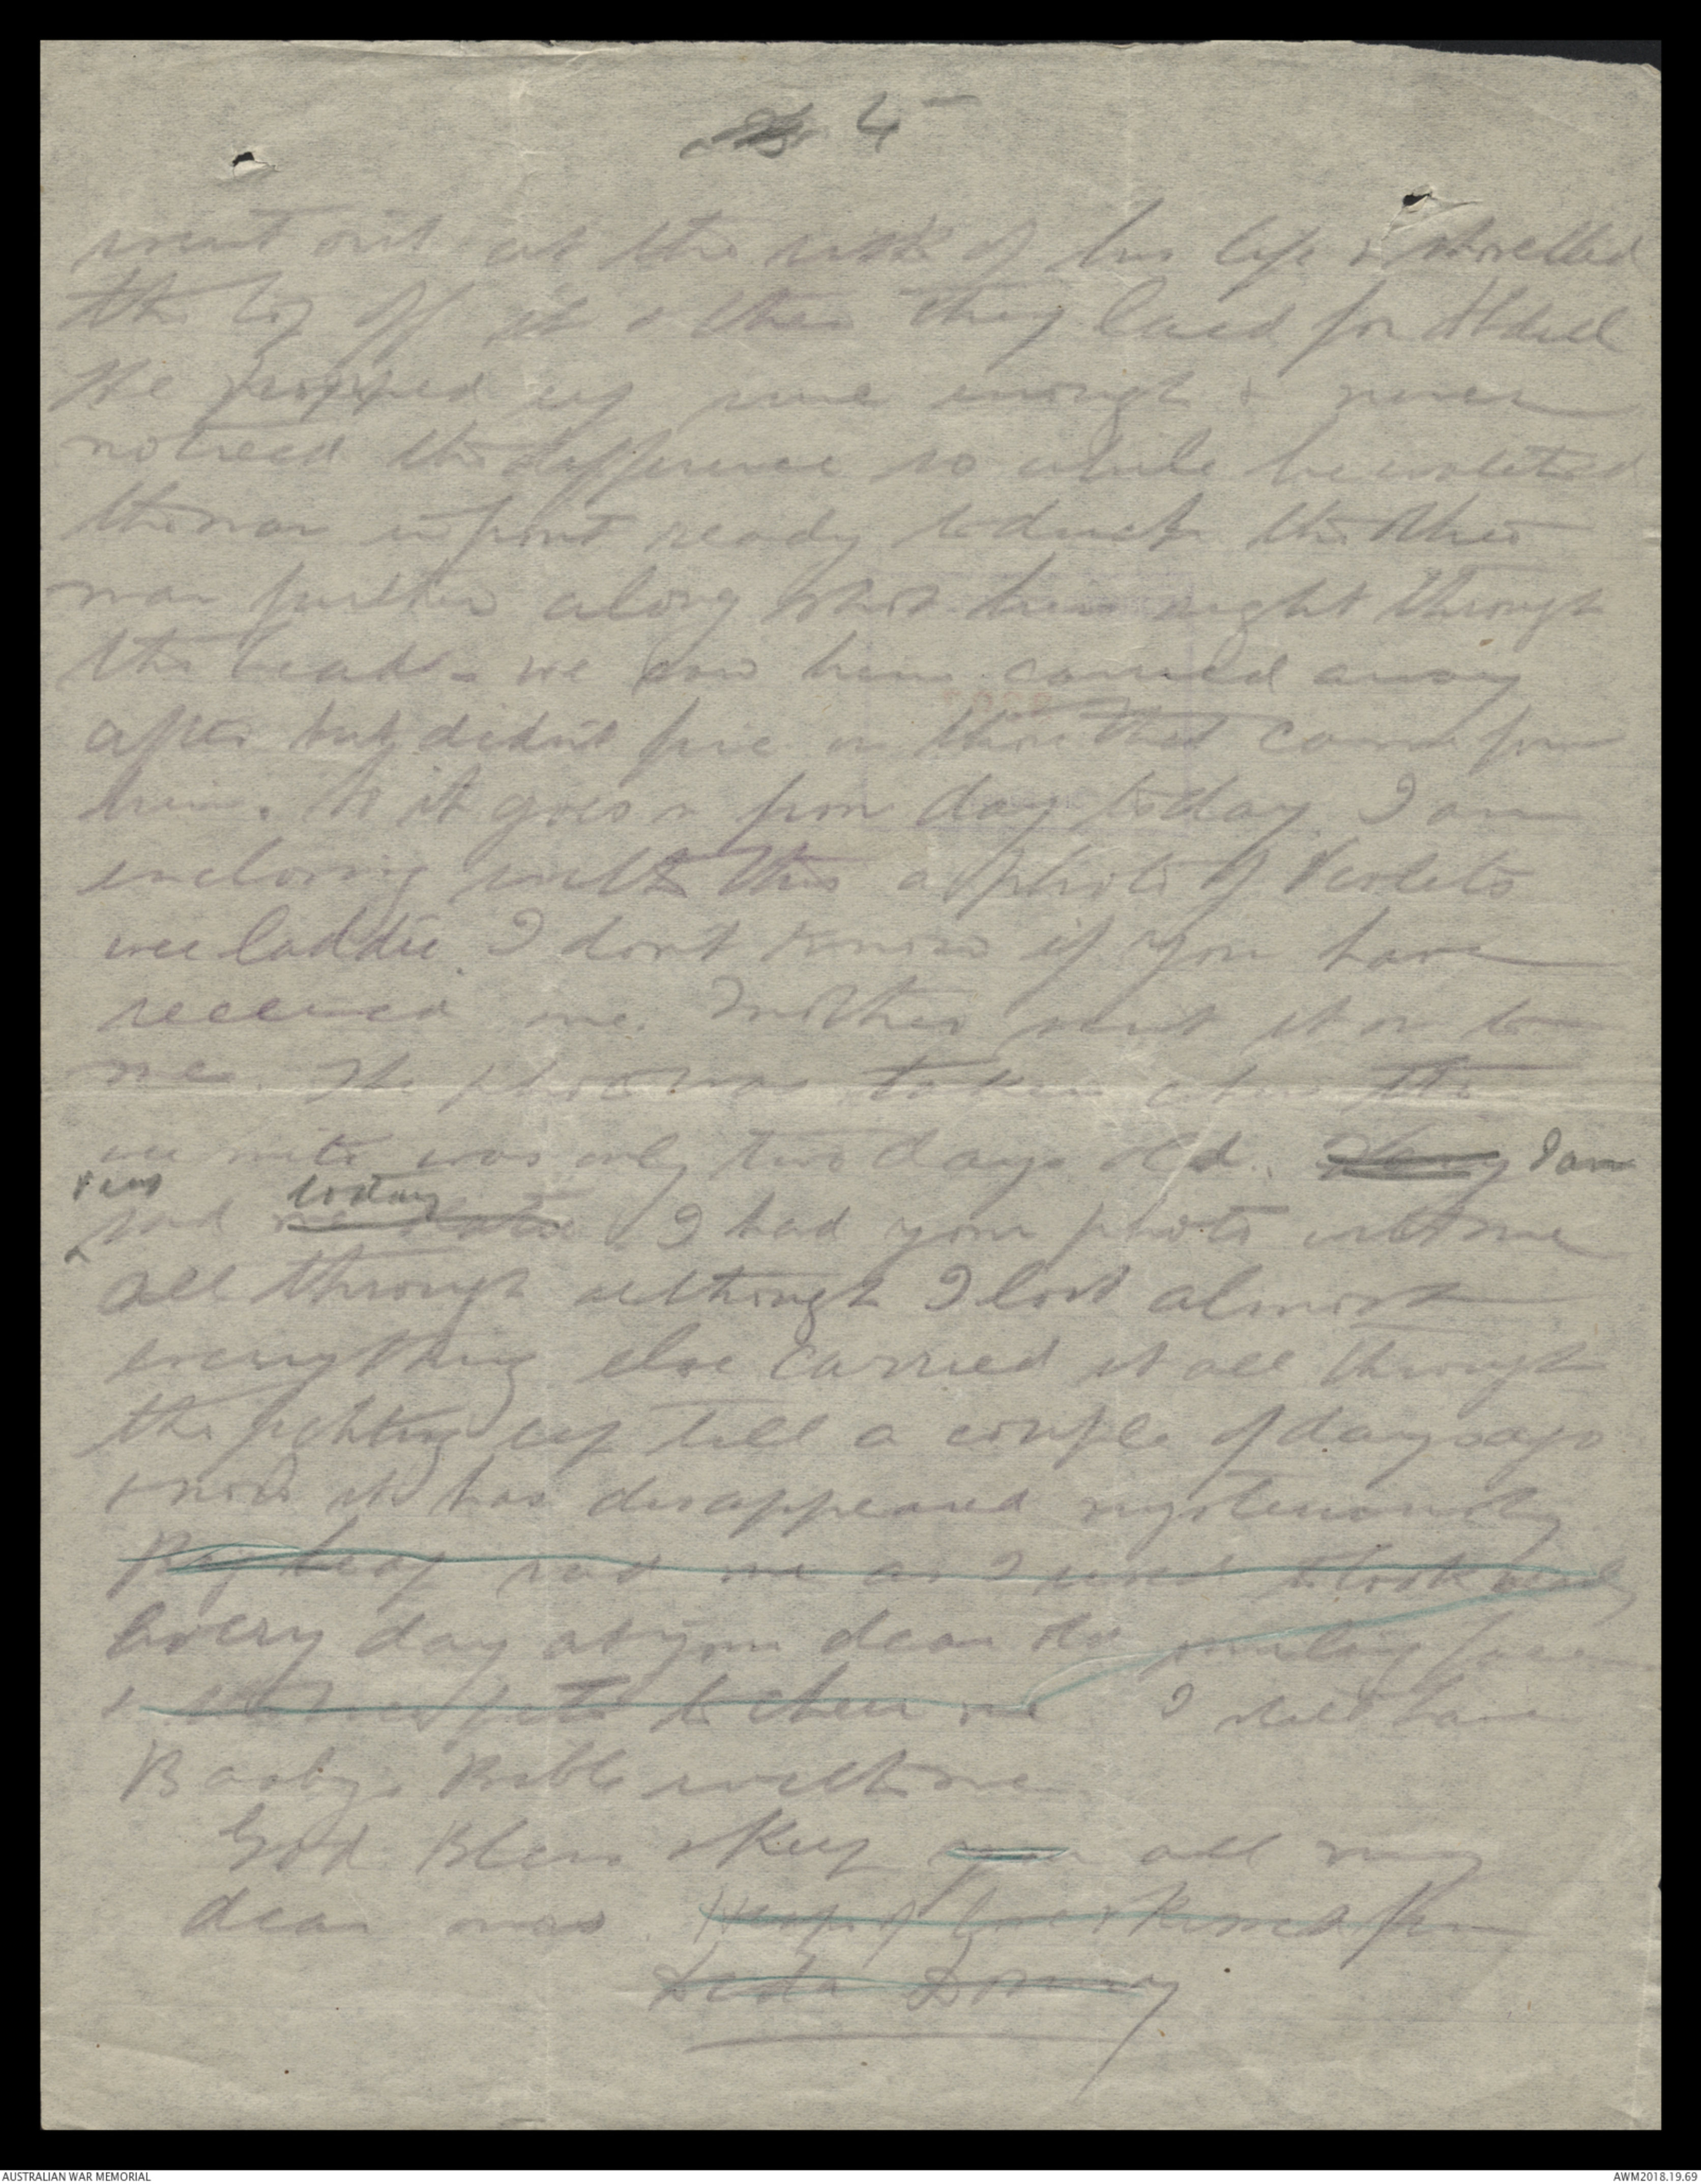 4
went out at the risk of his life & shovelled
the top off it & then they laid for Abdul
He popped up sure enough & never
noticed the difference so while he watched
the man in front ready to duck the other
man further along shot him right through
the head - we saw him carried away
after but didn't fire on those that came for
him. So it goes on from day to day. I am
enclosing with this a photo of Violets
wee laddie. I don't know if you have
received one. Mother sent it on to
me. The photo was taken when the
wee mite was only two days old. Very I am
very today
sad I had your photo with me
all through although I lost almost
everything else carried it all through
the fighting up till a couple of days ago
& now it has disappeared mysteriously
sad me as I used to look
every day at your dear old smiling face
& to cheer me I still have
Baby's Bible with me
God Bless & Keep you all my
dear ones. Heaps of love & kisses from